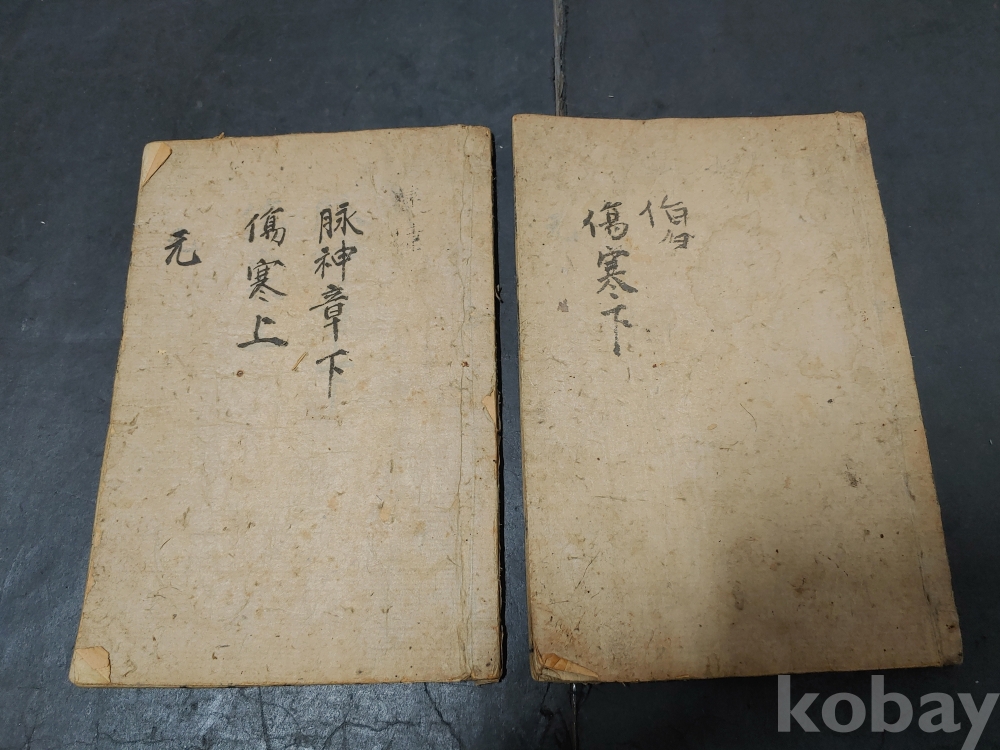 脉神章下
傷寒上
元
傷寒下
kobay